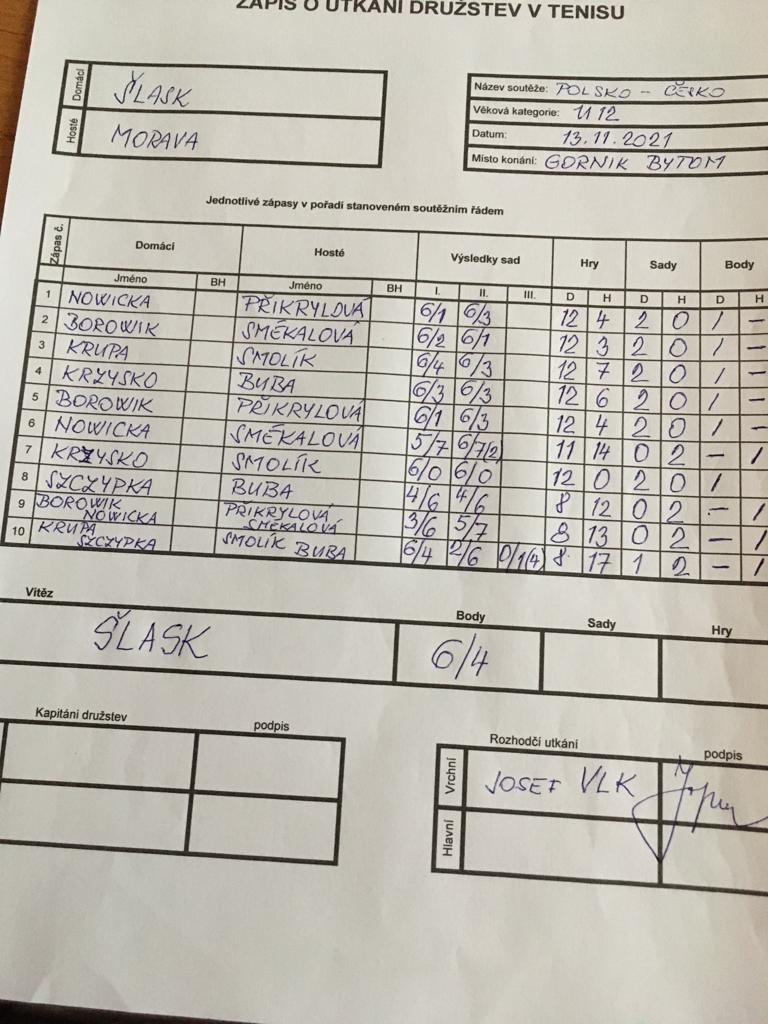 ZÁPIS O UTKÁNÍ DRUŽSTEV V TENISU
Domácí ŠLASK
Hosté MORAVA
Název soutěže: POLSKO - ČESKO
Věková kategorie: U12
Datum: 13.11.2021
Místo konání: GORNIK BYTOM
Jednotlivé zápasy v pořadí stanoveném soutěžním řádem
Zápas č. Domácí Hosté Výsledky sad Hry Sady Body
Jméno BH Jméno BH I. II. III. D H D H D H
1 NOWICKA PŘIKRYLOVÁ 6/1 6/3 12 4 2 0 1 -
2 BOROWIK SMÉKALOVÁ 6/2 6/1 12 3 2 0 1 -
3 KRUPA SMOLÍK 6/4 6/3 12 7 2 0 1 -
4 KRZYSKO BUBA 6/3 6/3 12 6 2 0 1 -
5 BOROWIK PŘIKRYLOVÁ 6/1 6/3 12 4 2 0 1 -
6 NOWICKA SMÉKALOVÁ 5/7 6/7(2) 11 14 0 2 - 1
7 KRZYSKO SMOLÍK 6/0 6/0 12 0 2 0 1
8 SZCZYPKA BUBA 4/6 4/6 8 12 0 2 - 1
9 BOROWIK NOWICKA PŘIKRYLOVÁ SMÉKALOVÁ 3/6 5/7 8 13 0 2 - 1
10 KRUPA SZCZYPKA SMOLÍK BUBA 6/4 2/6 0/1(4) 8 17 1 2 - 1
Vítěz Body Sady Hry
ŠLASK 6/4
Kapitáni družstev podpis
Rozhodčí utkání podpis
Vrchní JOSEF VLK
Hlavní